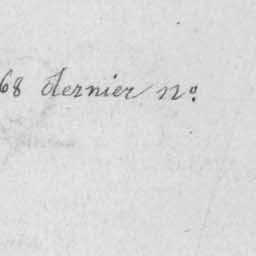 68 dernier nº.